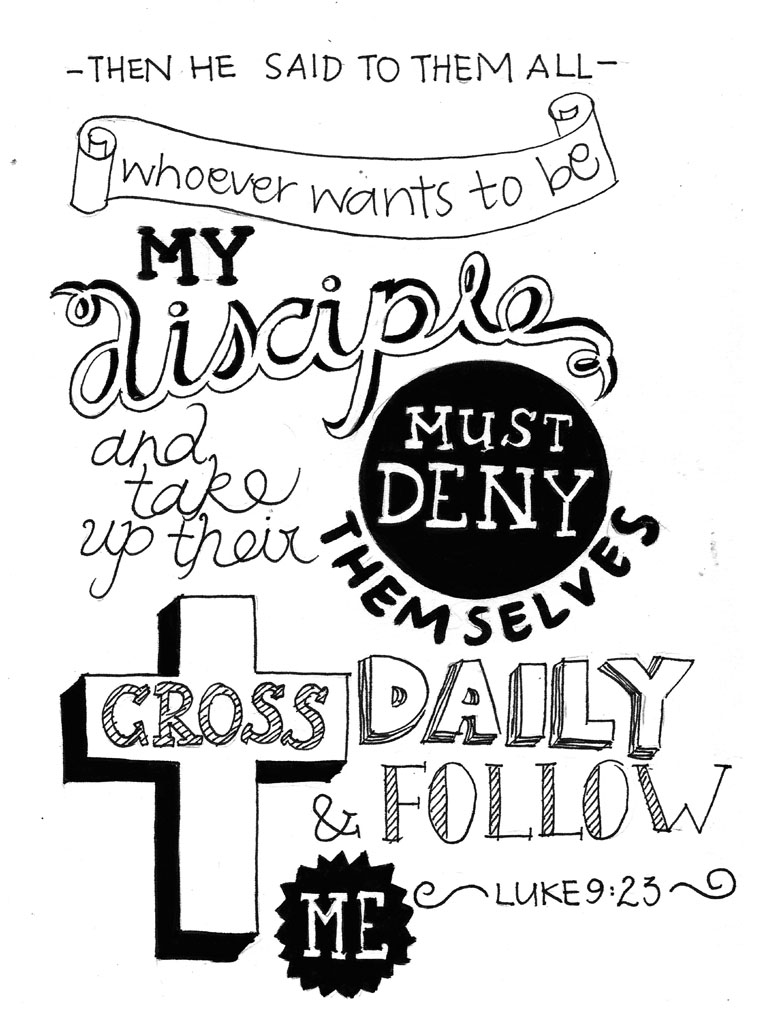 -THEN HE SAID TO THEM ALL-
whoever wants to be
MY
disciple
MUST
DENY
THEMSELVES
and
take
up their
CROSS
DAILY
& FOLLOW
ME
LUKE 9:23